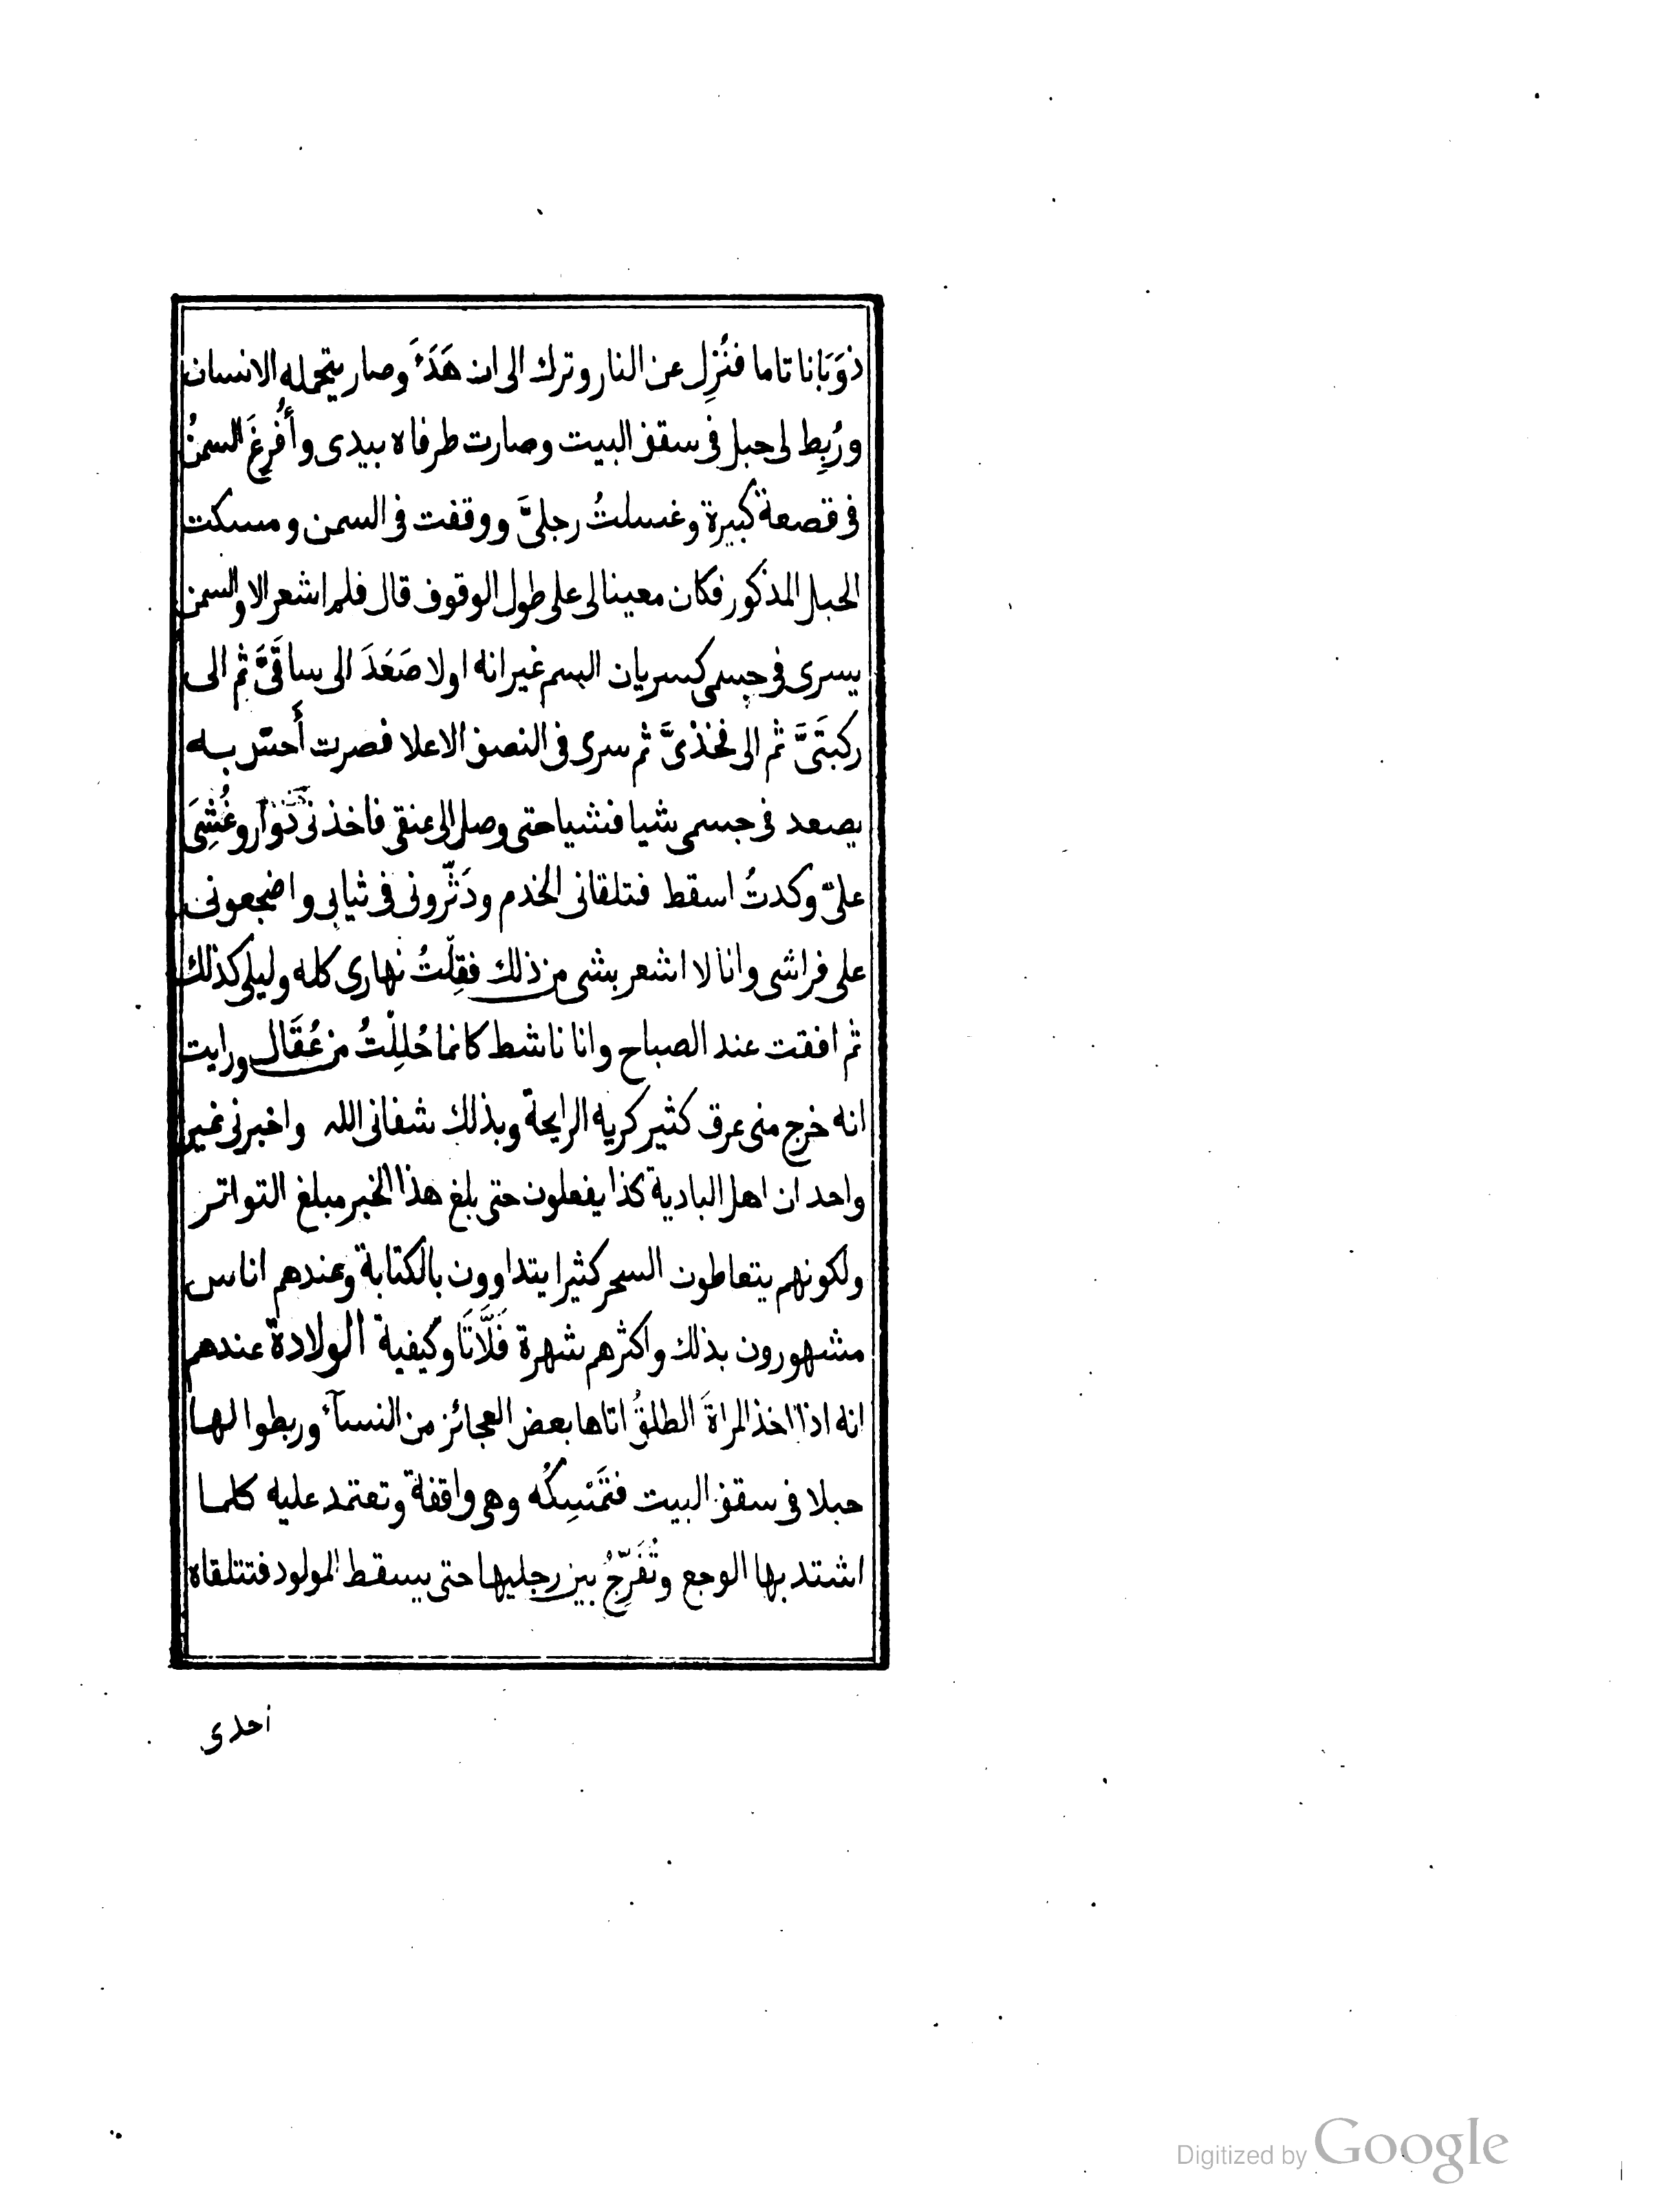 ذوَبَانا تاما فنُزِل عن النار وترك الى ان هَدَءَ وصار يتحمله الانسان
ورُبِط لى حبل فى سقف البيت وصارت طرفاه بيدى وأُفرِغَ السمنُ
فى قصعة كبيرة وغسلتُ رجلىَّ ووقفت فى السمن ومسكت
الحبل المذكور فكان معينا لى على طول الوقوف قال فلم اشعر الا والسمن
يسرى فى جسمى كسريان السم غير انه اولا صَعَدَ الى ساقَىَّ ثم الى
ركبتَىَّ ثم الى فخذىَّ ثم سرى فى النصف الاعلا فصرت أحسّ به
يصعد فى جسمى شيا فشيا حتى وصل الى عنقى فاخذنى دُوَار وغُشِىَ
علىّ وكدتُ اسقط فتلقانى الخدم ودَثّرونى فى ثيابى واضجعونى
على فراشى وانا لا اشعر بشى من ذلك فقِلّتُ نهارى كله وليلى كذلك
ثم افقت عند الصباح وانا ناشط كانما حُلِلْتُ من عُقَال ورايت
انه خرج منى عرق كثير كريه الرايحة وبذلك شفانى الله واخبرنى غير
واحد ان اهل البادية كذا يفعلون حتى بلغ هذا الخبر مبلغ التواتر
ولكونهم يتعاطون السحر كثيرا يتداوون بالكتابة وعندهم اناس
مشهورون بذلك واكثرهم شهرة فَلَّاتَا وكيفية الولادة عندهم
انه اذا اخذ المراةَ الطلقُ اتاها بعض العجائز من النسآء وربطوا لها
حبلا فى سقف البيت فتَمْسِكُه وهى واقفة وتعتمد عليه كلما
اشتد بها الوجع وتُفَرِّجُ بين رجليها حتى يسقط المولود فتتلقاه
احدى
Digitized by Google